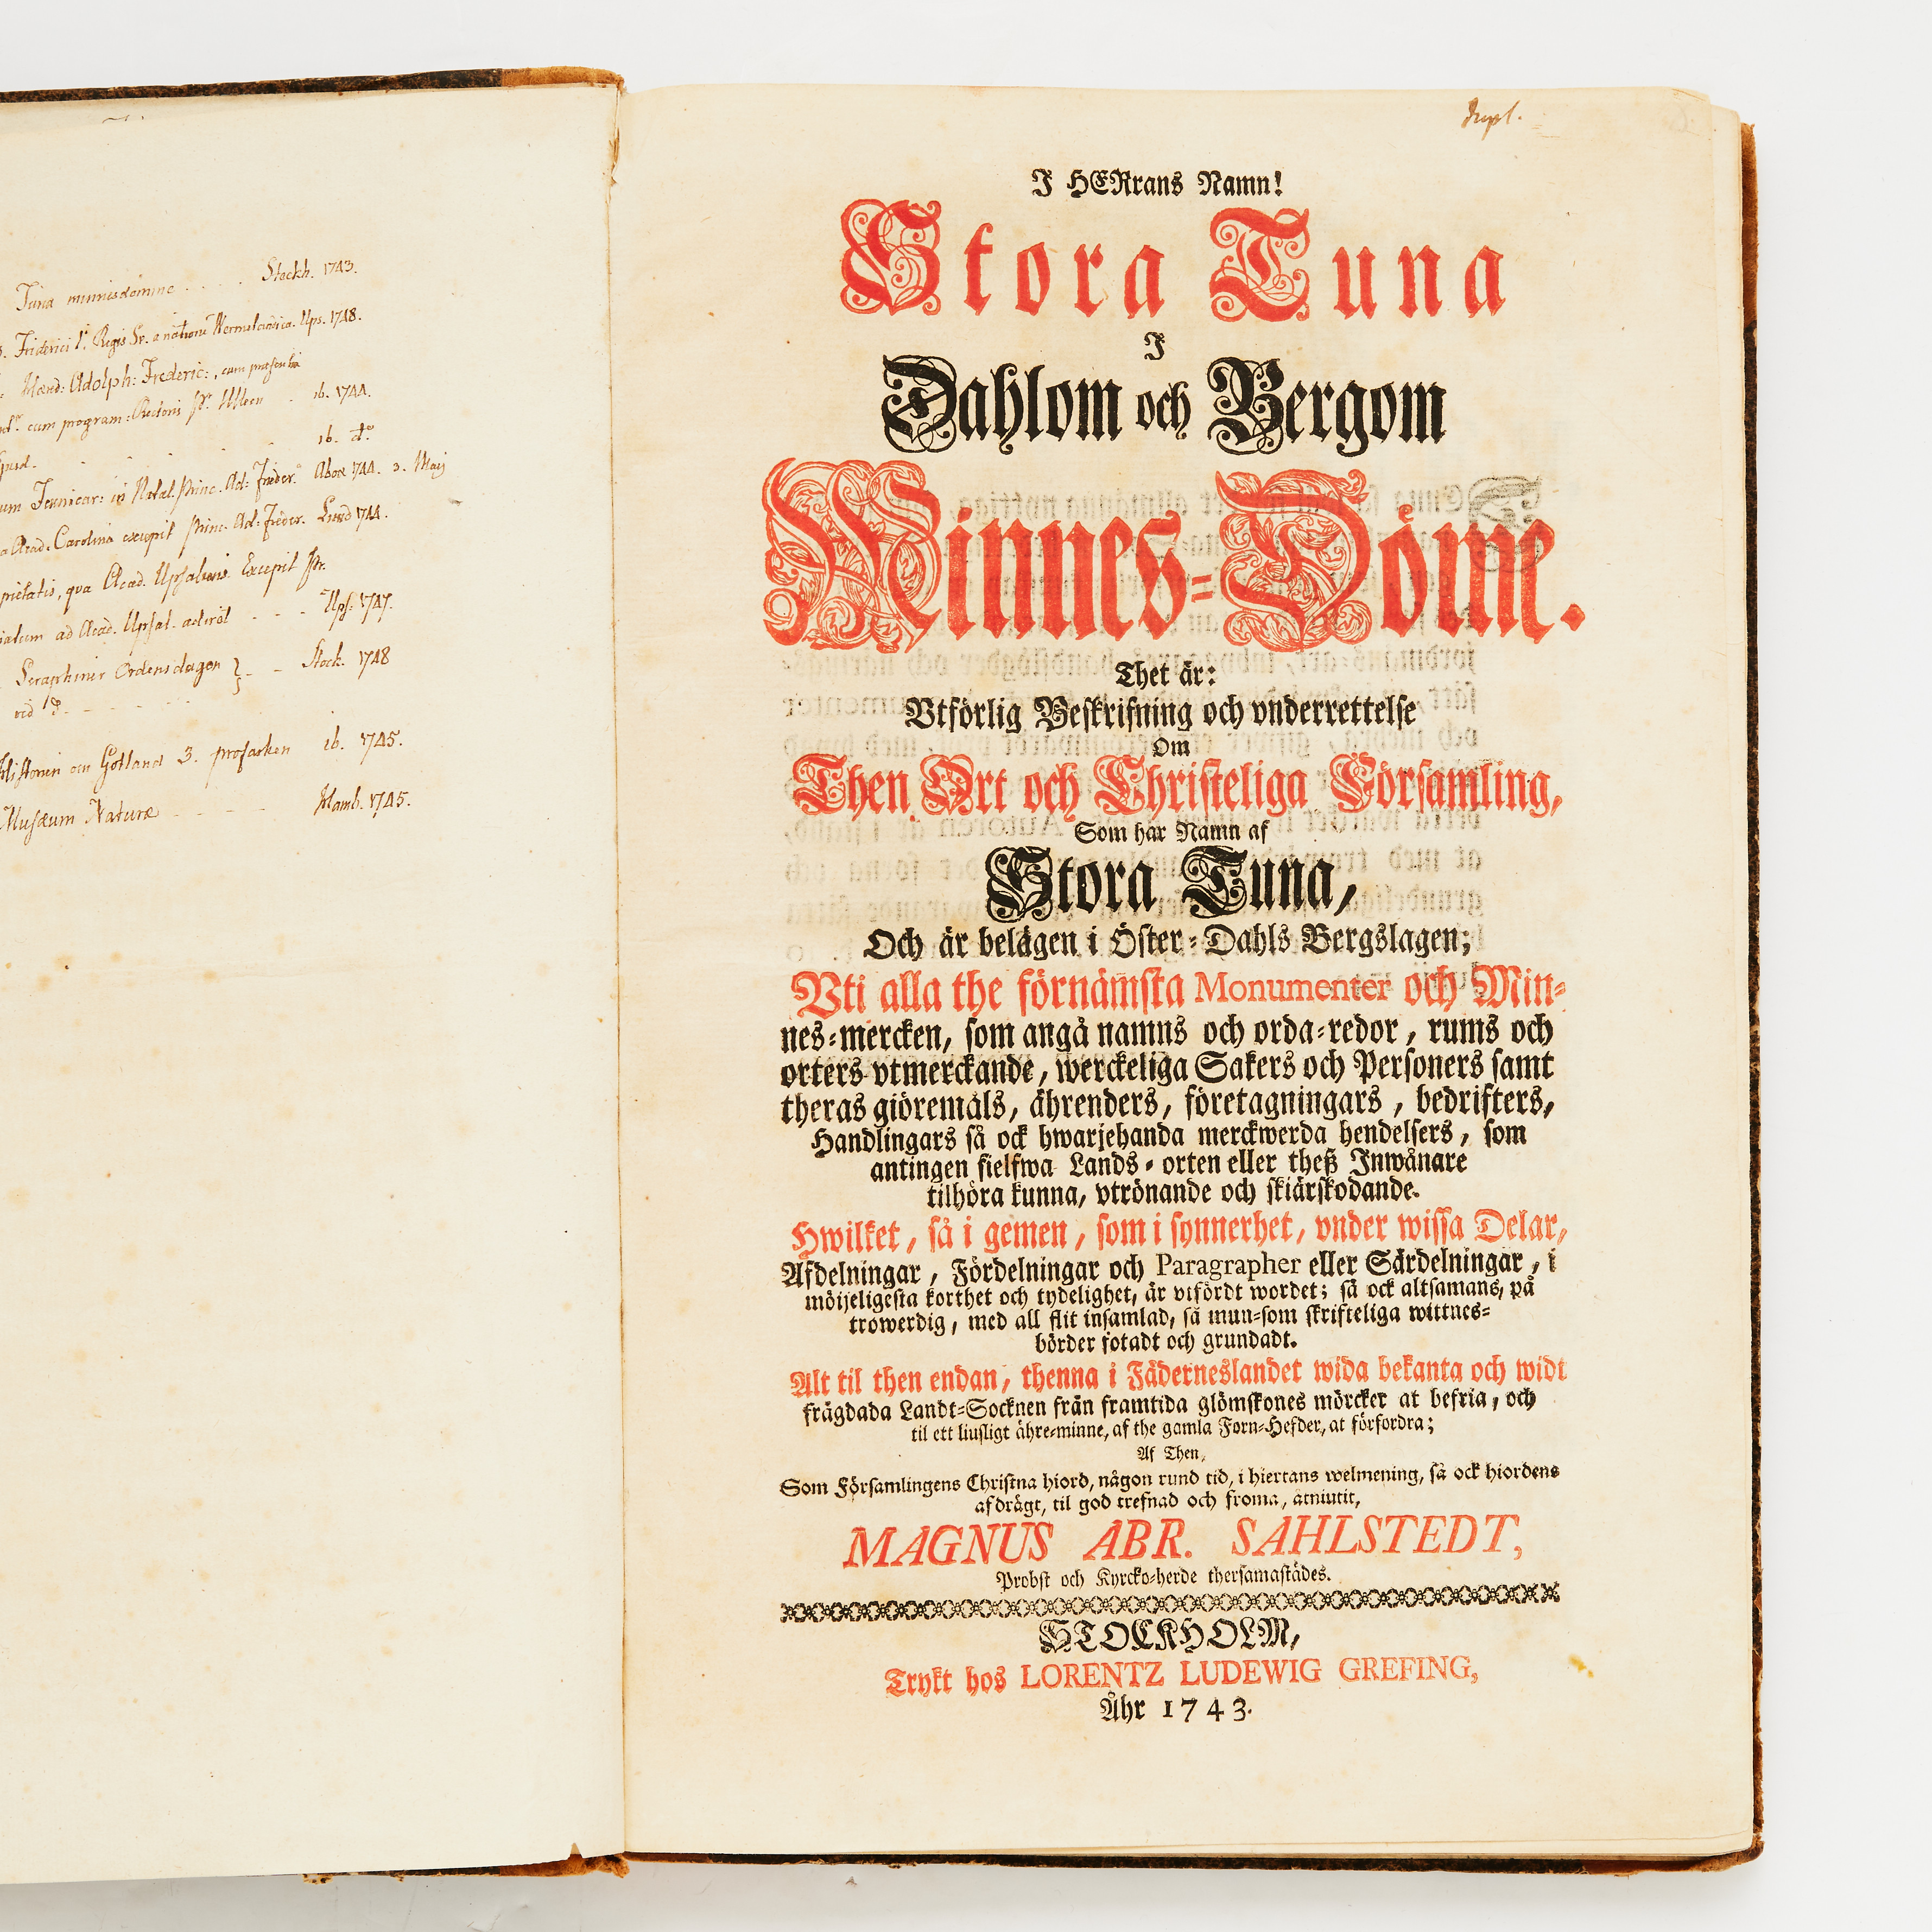 Tuna minnesdömme . . . . Stockh. 1743.
Friderici 1. Regis Sv. a natione Wermelandica. Ups. 1748.
Hæred: Adolph: Frederic:, cum
cum program: Rectoris . ib. 1744.
ib. do
in Natal. Princ. Ad: Freder. Aboæ 1744. 3. Maij
Acad. Carolina excepit Princ. Ad: Freder. Lund 1744.
pietatis, qva Acad. Upsaliens. Excepit Pr.
ad Acad. Upsal. - - - Ups. 1747.
Seraphimer Ordensdagen } - - Stock. 1748
vid
Historien om Gotland 3. profarken ib. 1745.
Musæum Naturæ - - - Hamb. 1745.
dupl.
I HERrans Namn!
Stora Tuna
I
Dahlom och Bergom
Minnes-Döme.
Thet är:
Vtförlig Beskrifning och vnderrettelse
Om
Then Ort och Christeliga Församling,
Som har Namn af
Stora Tuna,
Och är belägen i Öster-Dahls Bergslagen;
Vti alla the förnämsta Monumenter och Min-
nes-mercken, som angå namns och orda-redor, rums och
orters vtmerckande, werckeliga Sakers och Personers samt
theras giöremåls, ährenders, företagningars, bedrifters,
Handlingars så ock hwarjehanda merckwerda hendelsers, som
antingen sielfwa Lands-orten eller theß Inwånare
tilhöra kunna, vtrönande och skiärskodande.
Hwilket, så i gemen, som i synnerhet, vnder wissa Delar,
Afdelningar, Fördelningar och Paragrapher eller Särdelningar, i
möijeligesta korthet och tydelighet, är vtfördt wordet; så ock altsamans, på
trowerdig, med all flit insamlad, så mun-som skrifteliga wittnes-
börder fotadt och grundadt.
Alt til then endan, thenna i Fäderneslandet wida bekanta och widt
frägdada Landt-Socknen från framtida glömskones mörcker at befria, och
til ett liusligt ähre-minne, af the gamla Forn-Hefder, at förfordra;
Af Then,
Som Församlingens Christna hiord, någon rund tid, i hiertans welmening, så ock hiordens
afdrägt, til god trefnad och froma, åtniutit,
MAGNUS ABR. SAHLSTEDT,
Probst och Kyrcko-herde thersamastädes.
STOCKHOLM,
Trykt hos LORENTZ LUDEWIG GREFING,
Åhr 1743.